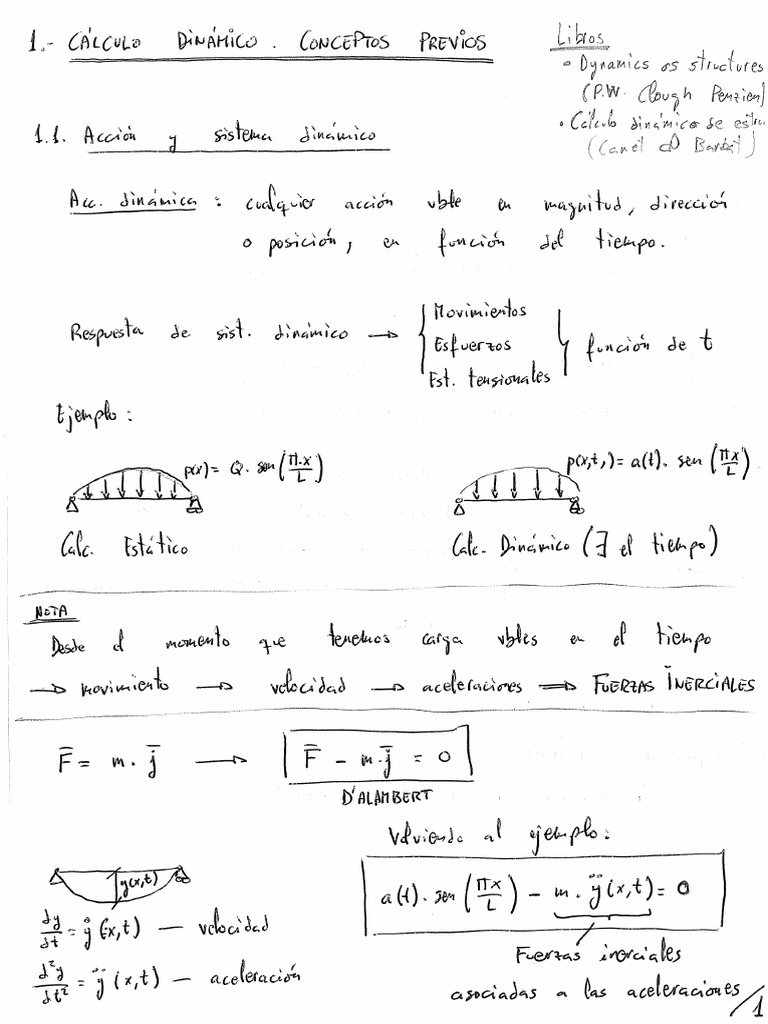 1.- CÁLCULO DINÁMICO. CONCEPTOS PREVIOS
Libros
• Dynamics os structures
(P.W. Clough Penzien)
• Cálculo dinámico de estru
(Canet Barbat)
1.1. Acción y sistema dinámico
Acc. dinámica : cualquier acción vble en magnitud, dirección
o posición, en función del tiempo.
Respuesta de sist. dinámico → { Movimientos
Esfuerzos
Est. tensionales } función de t
Ejemplo:
p(x) = Q · sen (π·x/L)
p(x,t,) = a(t) · sen (πx/L)
Calc. Estático
Calc. Dinámico (∃ el tiempo)
NOTA
Desde el momento que tenemos carga vbles en el tiempo
→ movimiento → velocidad → aceleraciones ⇒ FUERZAS INERCIALES
F̄ = m · j̄ → F̄ - m·j̄ = 0
D'ALAMBERT
Volviendo al ejemplo:
y(x,t)
a(t) · sen (πx/L) - m · ÿ(x,t) = 0
dy/dt = ẏ(x,t) — velocidad
Fuerzas inerciales
d²y/dt² = ÿ(x,t) — aceleración
asociadas a las aceleraciones
/1